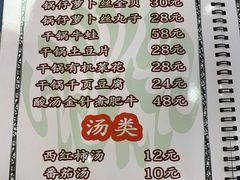 锅仔萝卜丝全贝 30元
锅仔萝卜丝丸子 28元
干锅牛蛙 58元
干锅土豆片 28元
干锅有机菜花 28元
干锅千页豆腐 24元
酸汤金针煮肥牛 48元
汤类
西红柿汤 12元
番茄汤 10元